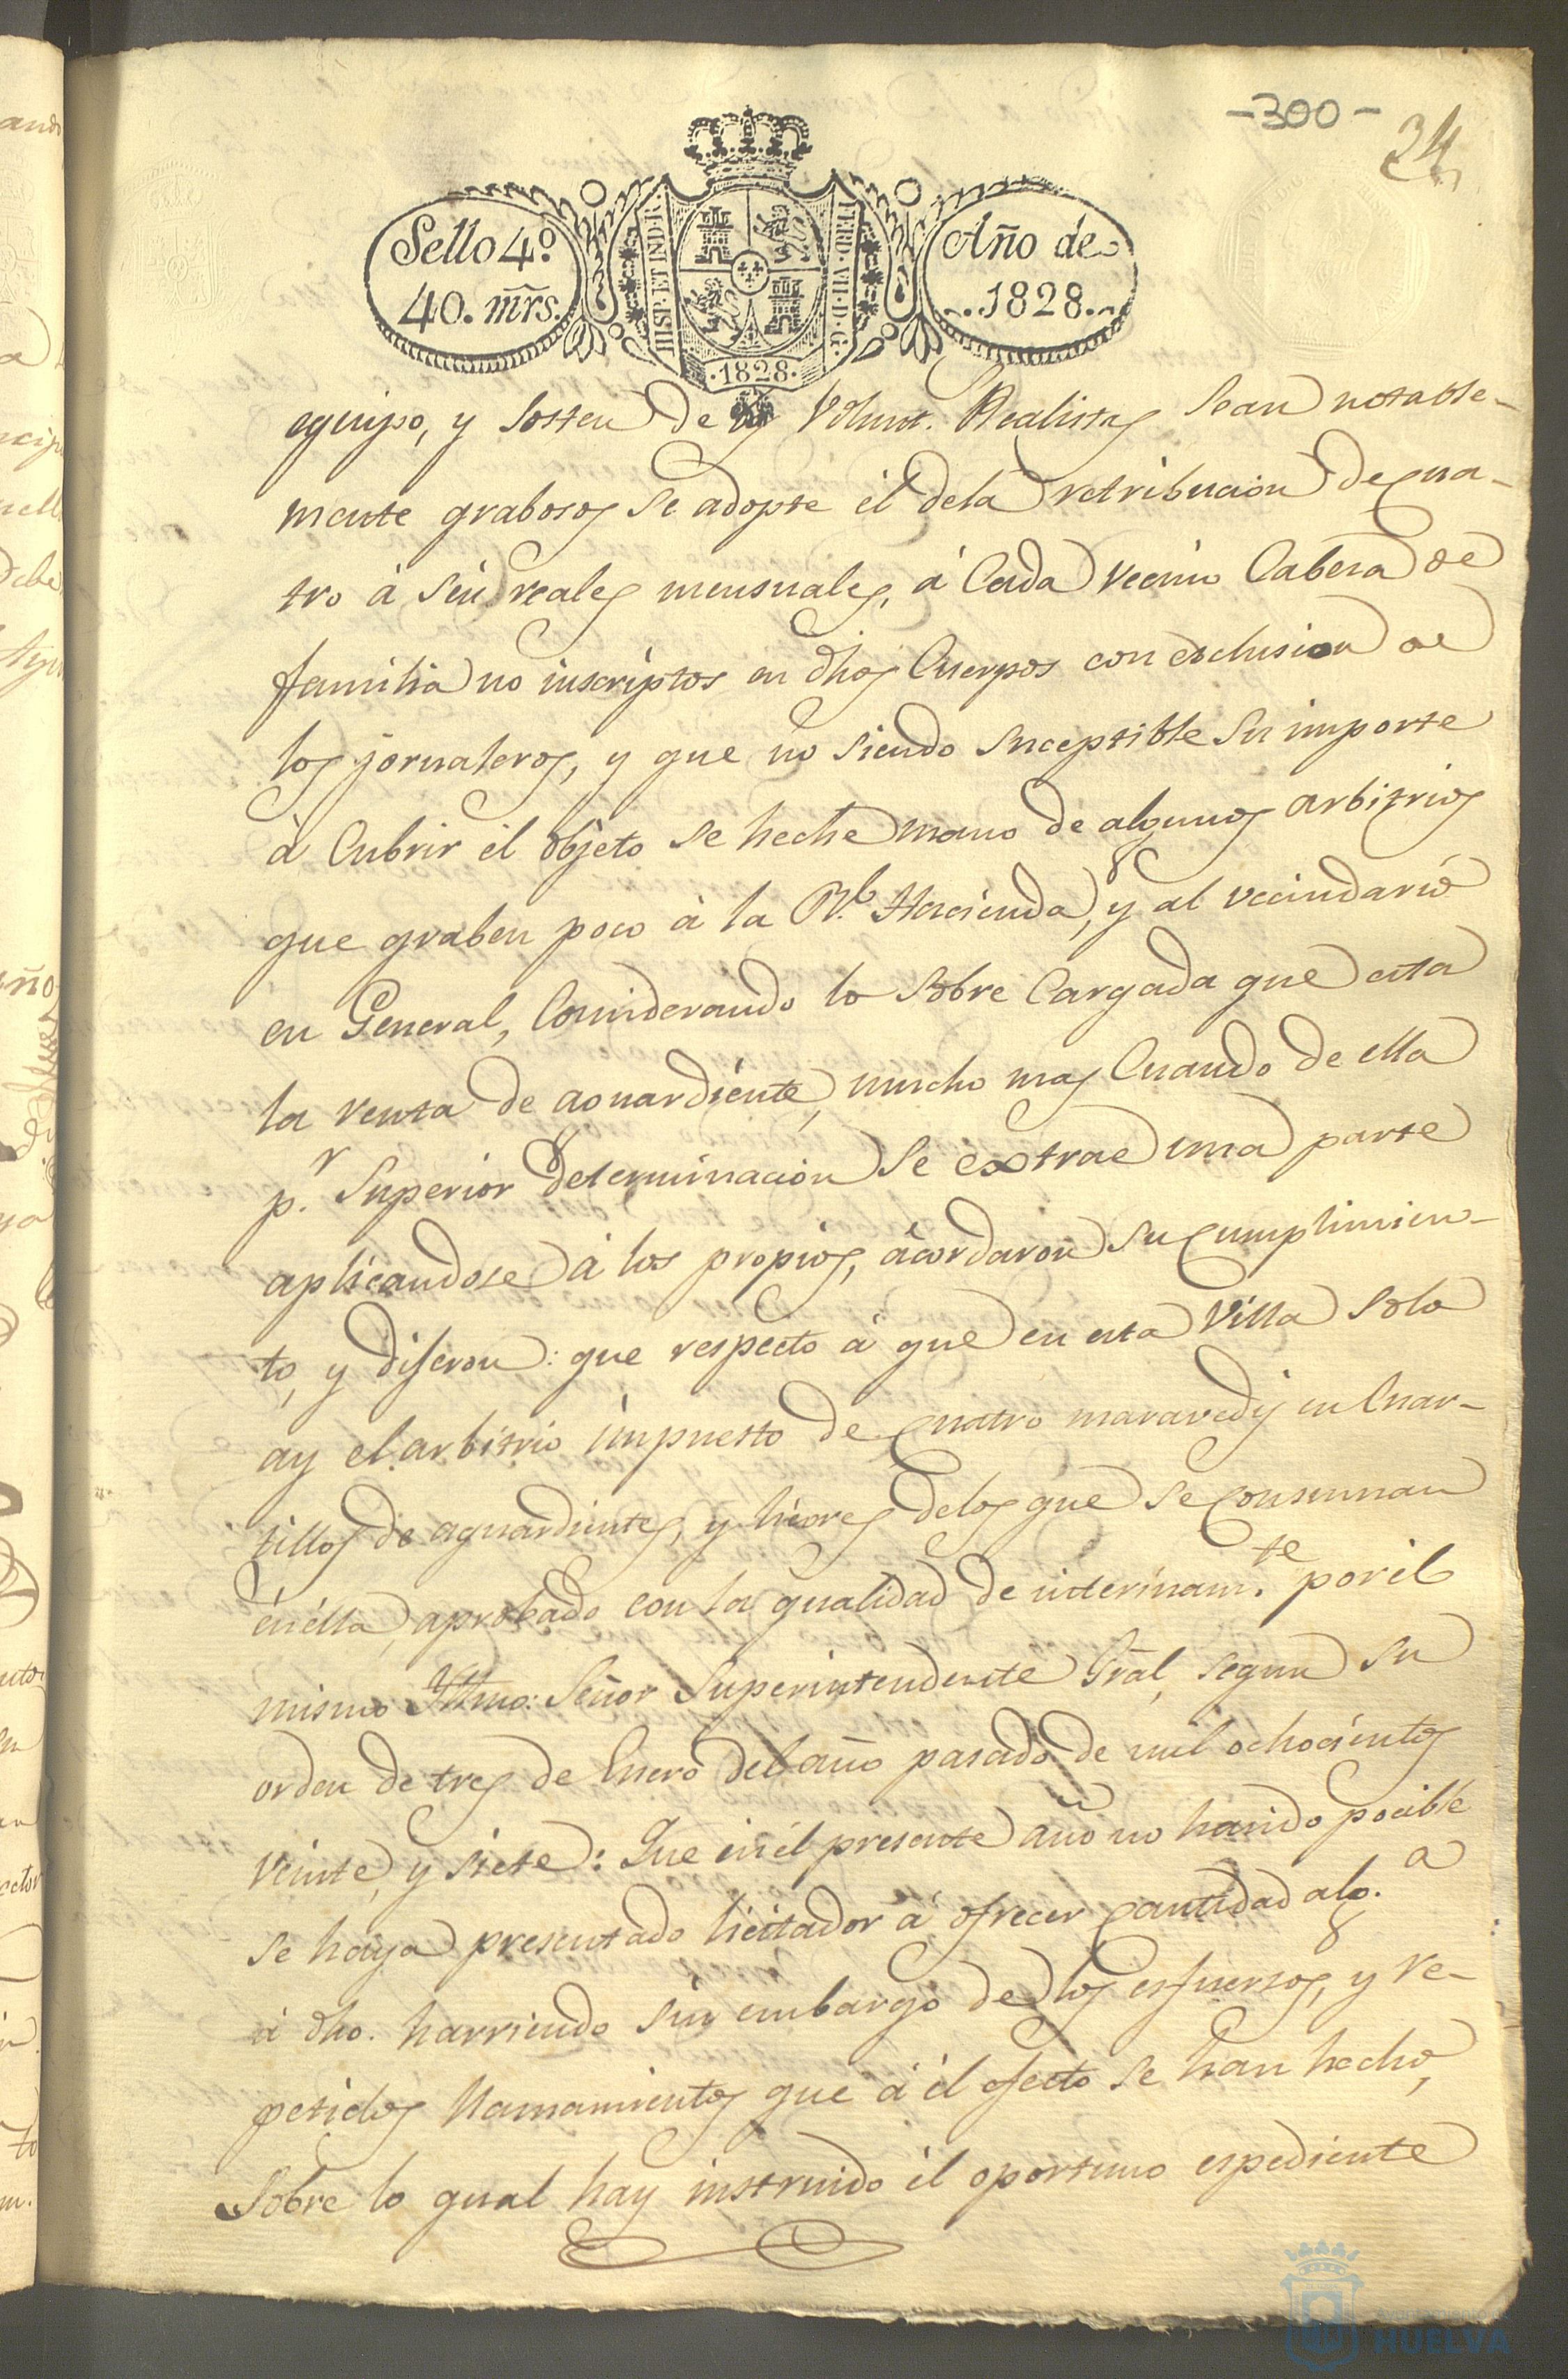 -300-
24
Sello 4º
40. mrs.
HISP. ET IND. R.
FERD. VII. D. G.
.1828.
Año de
1828.
equipo, y sosten de los Volunt. Realistas sean notable-
mente grabosos se adopte él dela retribucion de cua-
tro à seis reales mensuales, á Cada vecino Cabesa de
familia no inscriptos en dhos Cuerpos con esclusion de
los jornaleros, y que no siendo suceptible su importe
à Cubrir él objeto se heche mano de algunos arbitrios
que graben poco à la Rl. Hacienda, y al vecindario
en General, Considerando lo sobre Cargada que esta
la venta de aguardiente, mucho mas Cuando de ella
pr. Superior determinacion se extrae una parte
aplicandose à los propios, acordaron su cumplimien-
to, y diseron: que respecto á que en esta Villa solo
ay el arbitrio impuesto de cuatro maravedis en Cuar-
tillos de aguardientes, y licores delos que se consuman
en élla, aprobado con la qualidad de interinam.te por él
mismo Yltmo: Señor Superintendente Gral, segun su
orden de tres de Enero del año pasado de mil ochocientos
veinte, y siete: Que en él presente año no hasido pocible
se haya presentado licitador á ofrecer cantidad alg.a
à dho. harriendo sin embargo de los esfuersos, y re-
petidos llamamientos que á él efecto se han hecho,
Sobre lo qual hay instruido él oportuno espediente
Ayuntamiento de
HUELVA